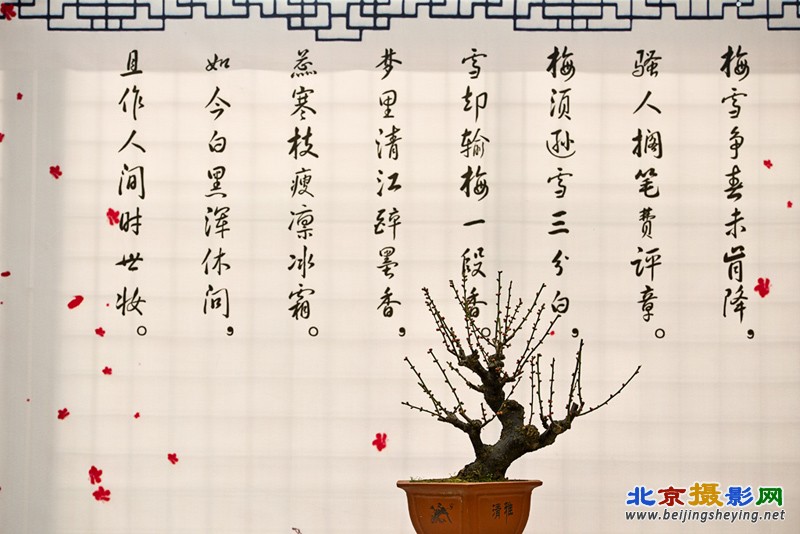 梅雪争春未肯降，
骚人搁笔费评章。
梅须逊雪三分白，
雪却输梅一段香。
梦里清江醉墨香，
蕊寒枝瘦凛冰霜。
如今白黑浑休问，
且作人间时世妆。
清雅
北京摄影网
www.beijingsheying.net